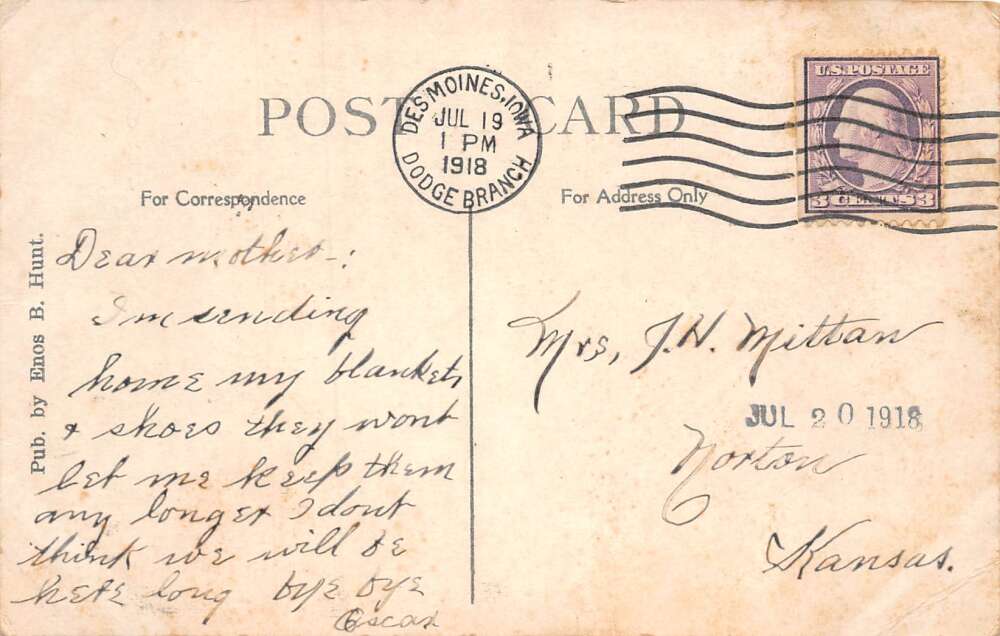 POST CARD
DES MOINES, IOWA
JUL 19
1 PM
1918
DODGE BRANCH
U.S. POSTAGE
3 CENTS 3
For Correspondence
For Address Only
Pub. by Enos B. Hunt.
Dear mother-:
I'm sending
home my blankets
& shoes they wont
let me keep them
any longer I dont
think we will be
here long bye bye
Oscar
Mrs, J. H. Mittan
JUL 20 1918
Norton
Kansas.